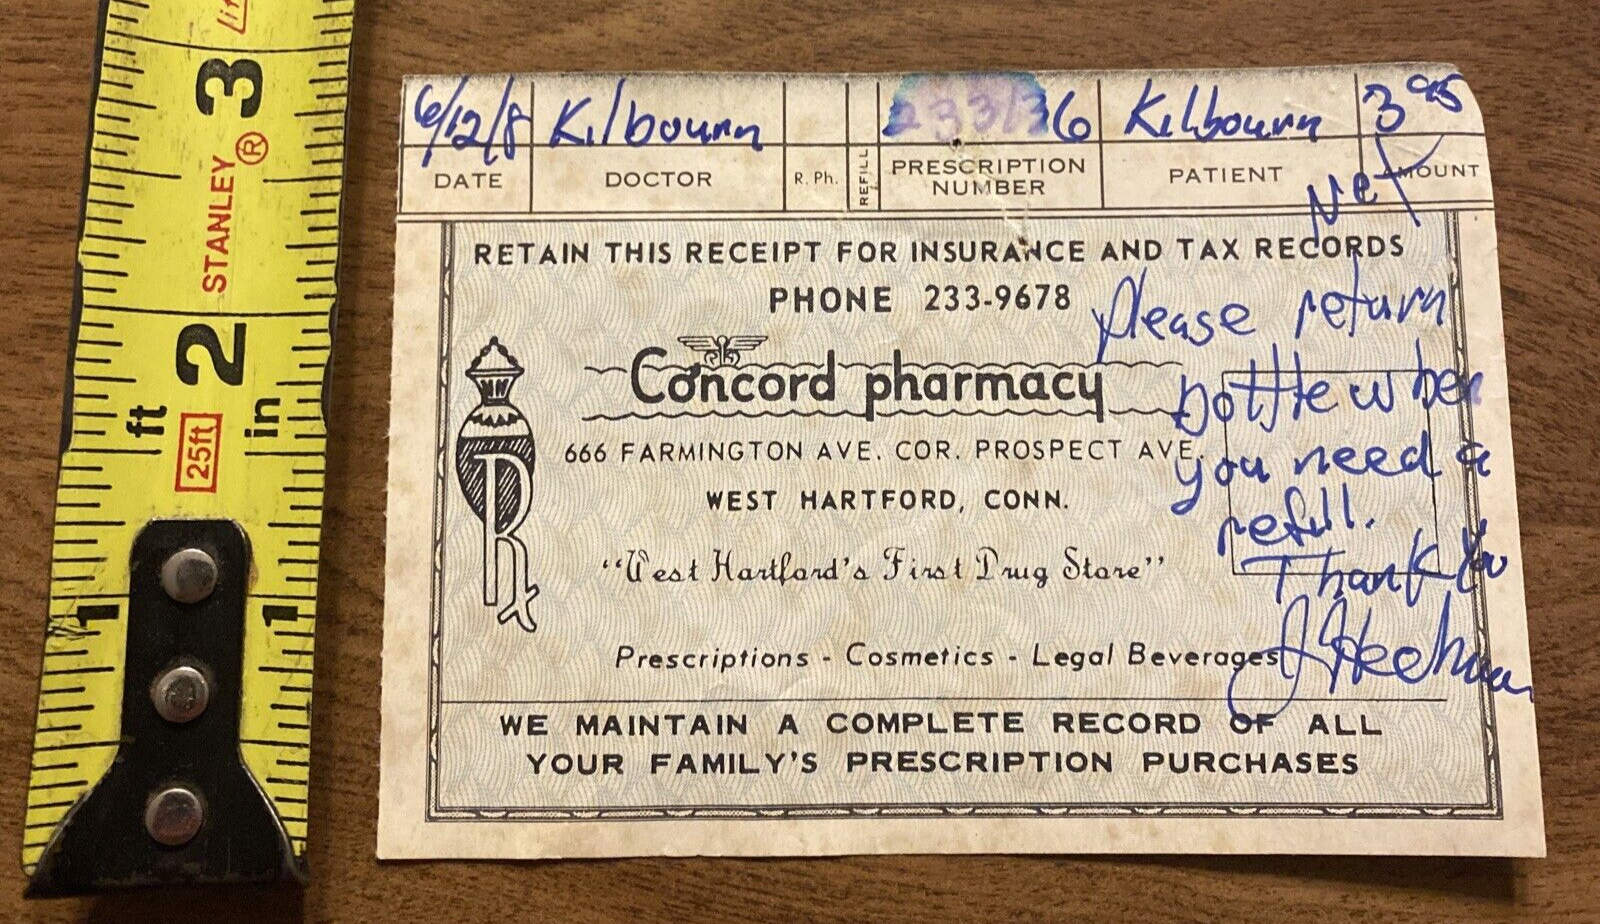 3
STANLEY ®
2
ft
25ft
in
1 1
6/12/8 Kilbourn 233136 Kilbourn 3 95
DATE DOCTOR R. Ph. REFILL PRESCRIPTION NUMBER PATIENT AMOUNT
Net
RETAIN THIS RECEIPT FOR INSURANCE AND TAX RECORDS
PHONE 233-9678
Please return
Concord pharmacy
bottle when
666 FARMINGTON AVE. COR. PROSPECT AVE.
you need a
WEST HARTFORD, CONN.
refill.
"West Hartford's First Drug Store"
Thank You
Prescriptions - Cosmetics - Legal Beverages
WE MAINTAIN A COMPLETE RECORD OF ALL
YOUR FAMILY'S PRESCRIPTION PURCHASES